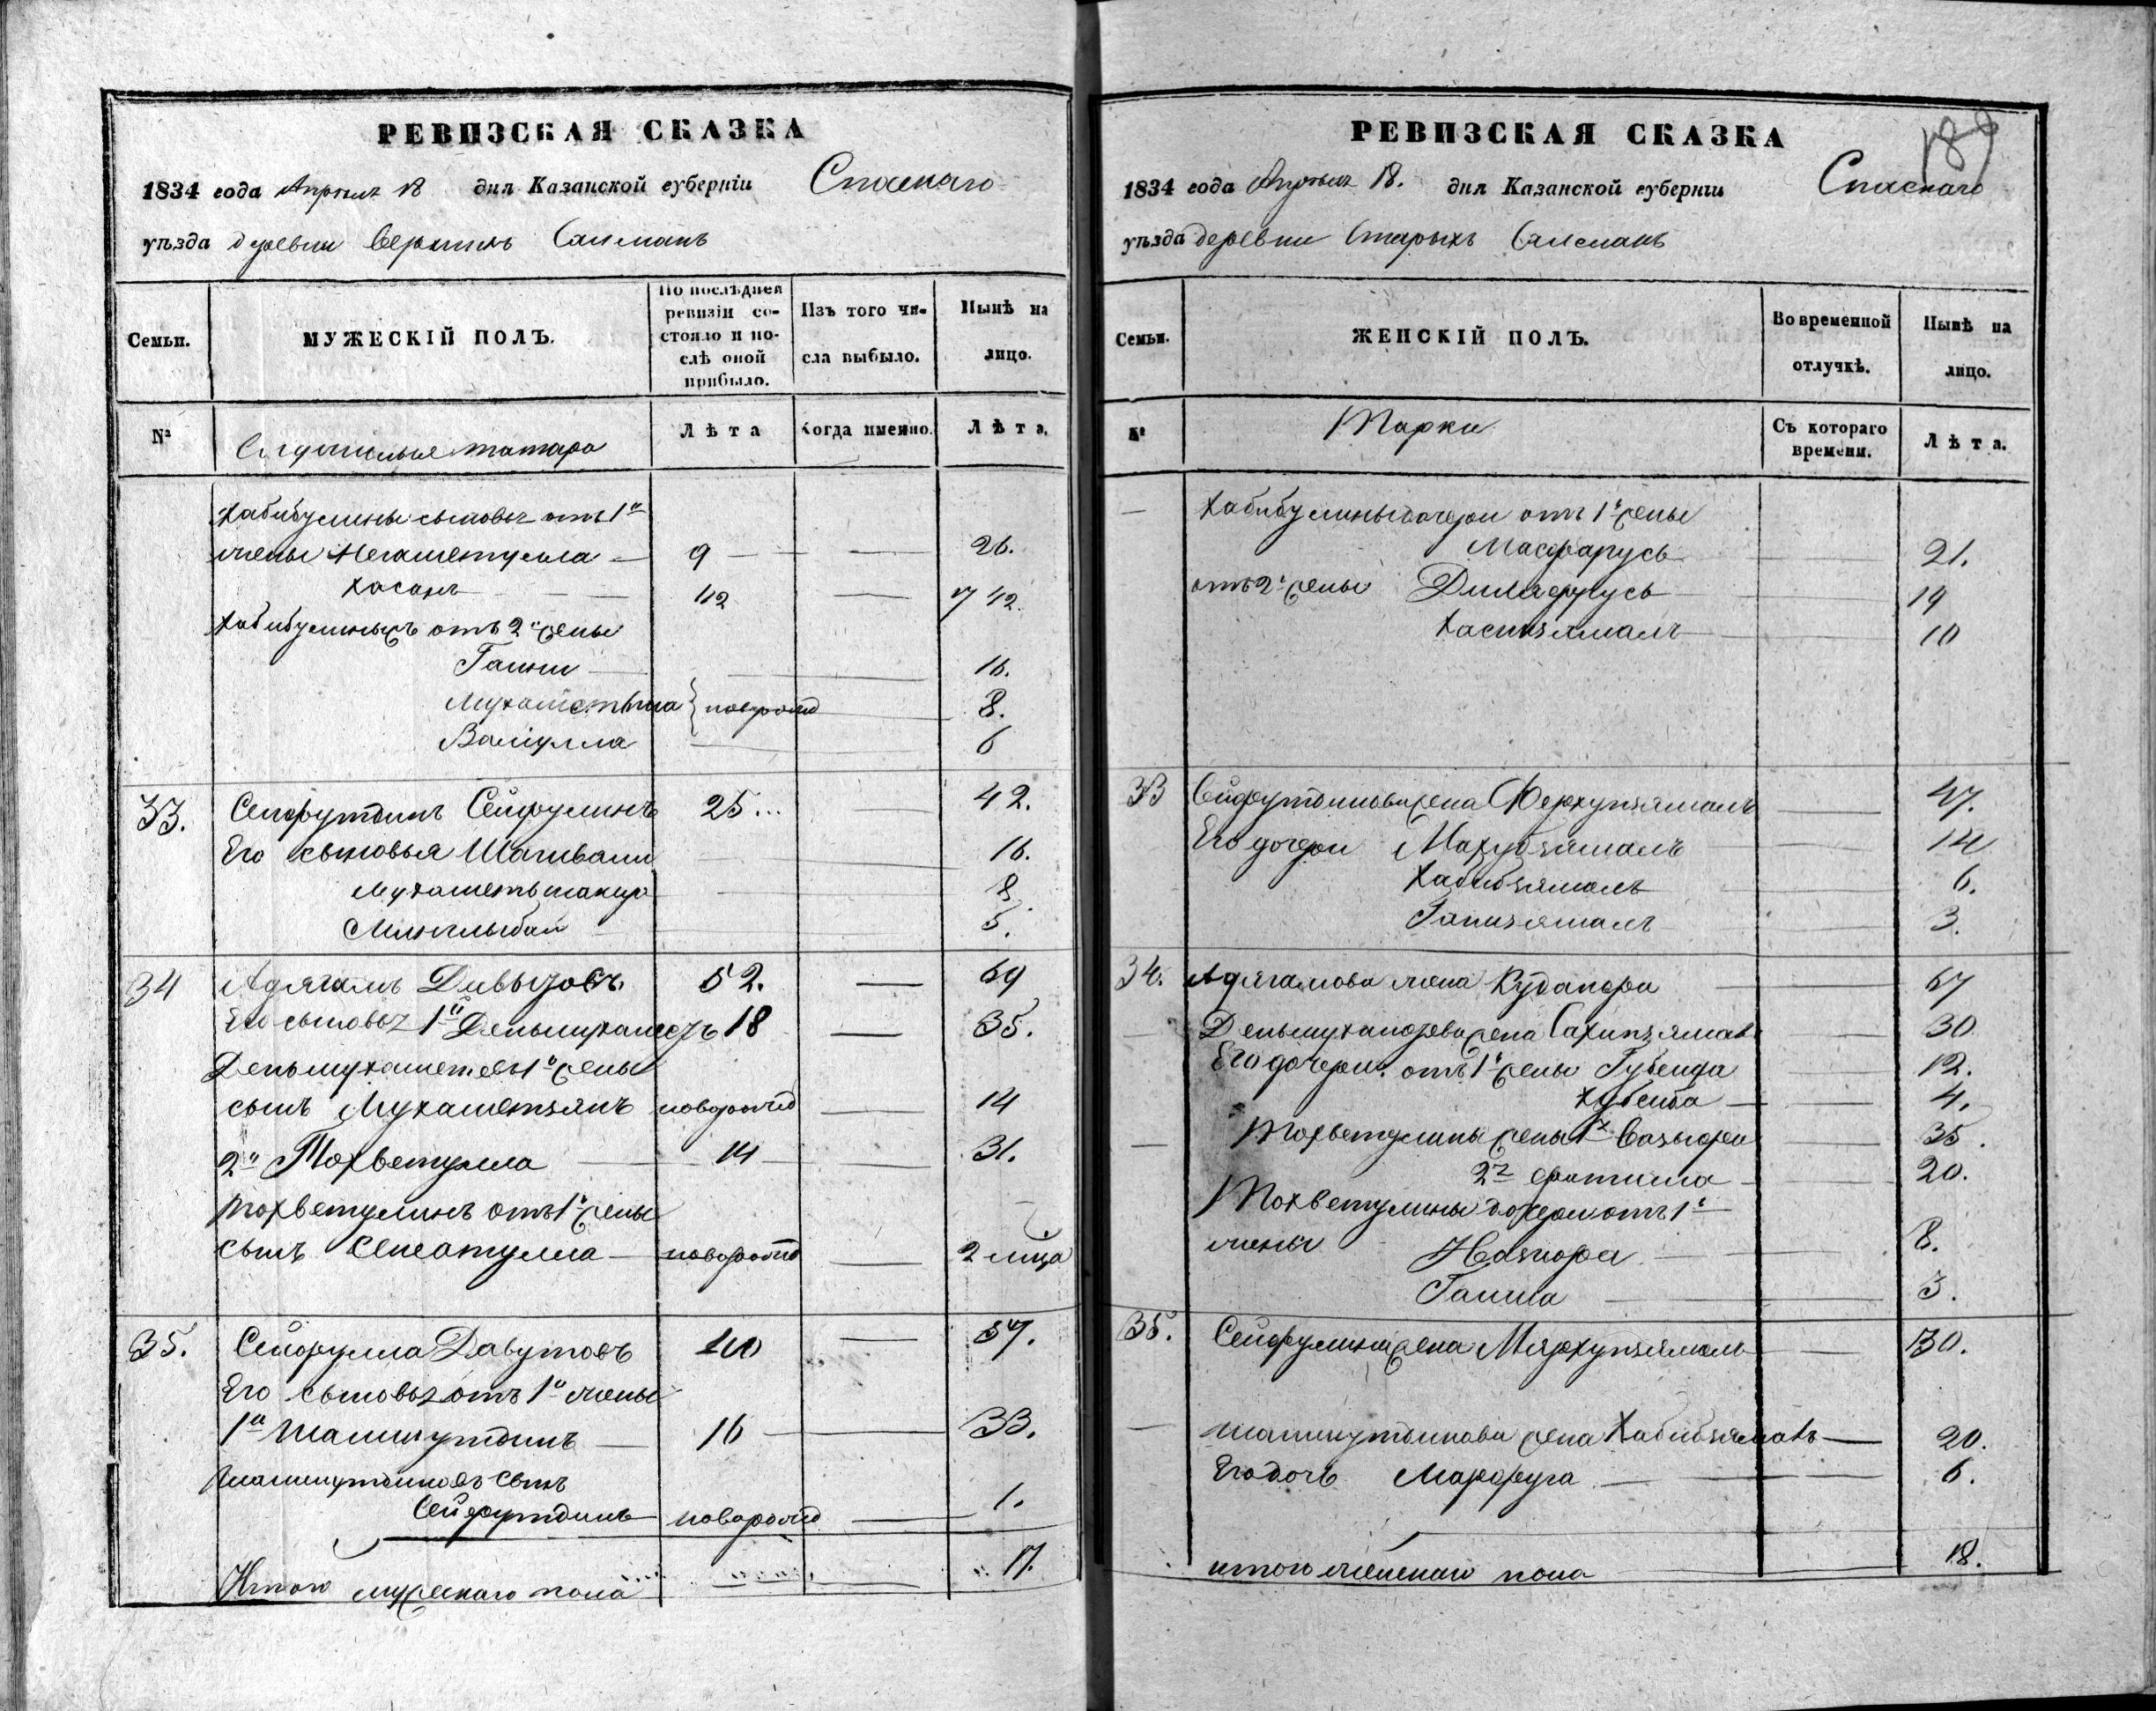 РЕВИЗСКАЯ СКАЗКА
1834 года Апреля 18 дня Казанской губерніи Спаскаго
уѣзда деревни Салманъ
Семьи.
МУЖЕСКІЙ ПОЛЪ.
По послѣдней ревизіи состояло и послѣ оной прибыло.
Изъ того числа выбыло.
Нынѣ на лицо.
№
татара
Лѣта
Когда именно.
Лѣта.
Хабибулины сыновья отъ 1й
жены Негаметулла 9 26.
Хасанъ 42
Хабибулиныхъ отъ 2й жены
Гайни 16.
новорожд 8.
Валиулла 6
33. Сейфутдинъ Сейфулинъ 25 42.
Его сыновья Шагивали 16.
Мухаметьшакир 8
5.
34 Адягамъ 52. 69
Его сыновья 1й Деньмухаметъ 18 35.
Деньмухаметев 1й жены
сынъ Мухаметзянъ новорожд 14
2й Тохветулла 14 31.
Тохветулинъ отъ 1й жены
сынъ новорожд 2 мца
35. Сейфулла Давутовъ 40 57.
Его сыновья отъ 1й жены
1й Шамшутдинъ 16 33.
Шамшутдиновъ сынъ
Сейфутдинъ новорожд 1.
Итого мужескаго пола 17.
РЕВИЗСКАЯ СКАЗКА
1834 года Апреля 18. дня Казанской губерніи Спаскаго
уѣзда деревни Старыхъ Салманъ
Семьи.
ЖЕНСКІЙ ПОЛЪ.
Во временной отлучкѣ.
Нынѣ на лицо.
№
Съ котораго времени.
Лѣта.
Хабибулины дочери отъ 1й жены
Масфарусь 21.
отъ 2й жены Диляфрусь 14
Хаспизямалъ 10
33 Сейфутдинова жена Ферхунзямалъ 47.
Его дочери Махубзямалъ 14
Хабибзямалъ 6.
Гайнизямалъ 3.
34. Адягамова жена 67
Деньмухаметева жена 30
Его дочери отъ 1й жены 12.
Хубейба 4.
Тохветулины жены 1я 35.
2я Фатима 20.
Тохветулины дочери отъ 1й
жены 8.
Гайша 3.
35. Сейфулина жена 30.
Шамшутдинова жена Хабибзямалъ 20.
Его дочь Марфуга 6.
итого женскаго пола 18.